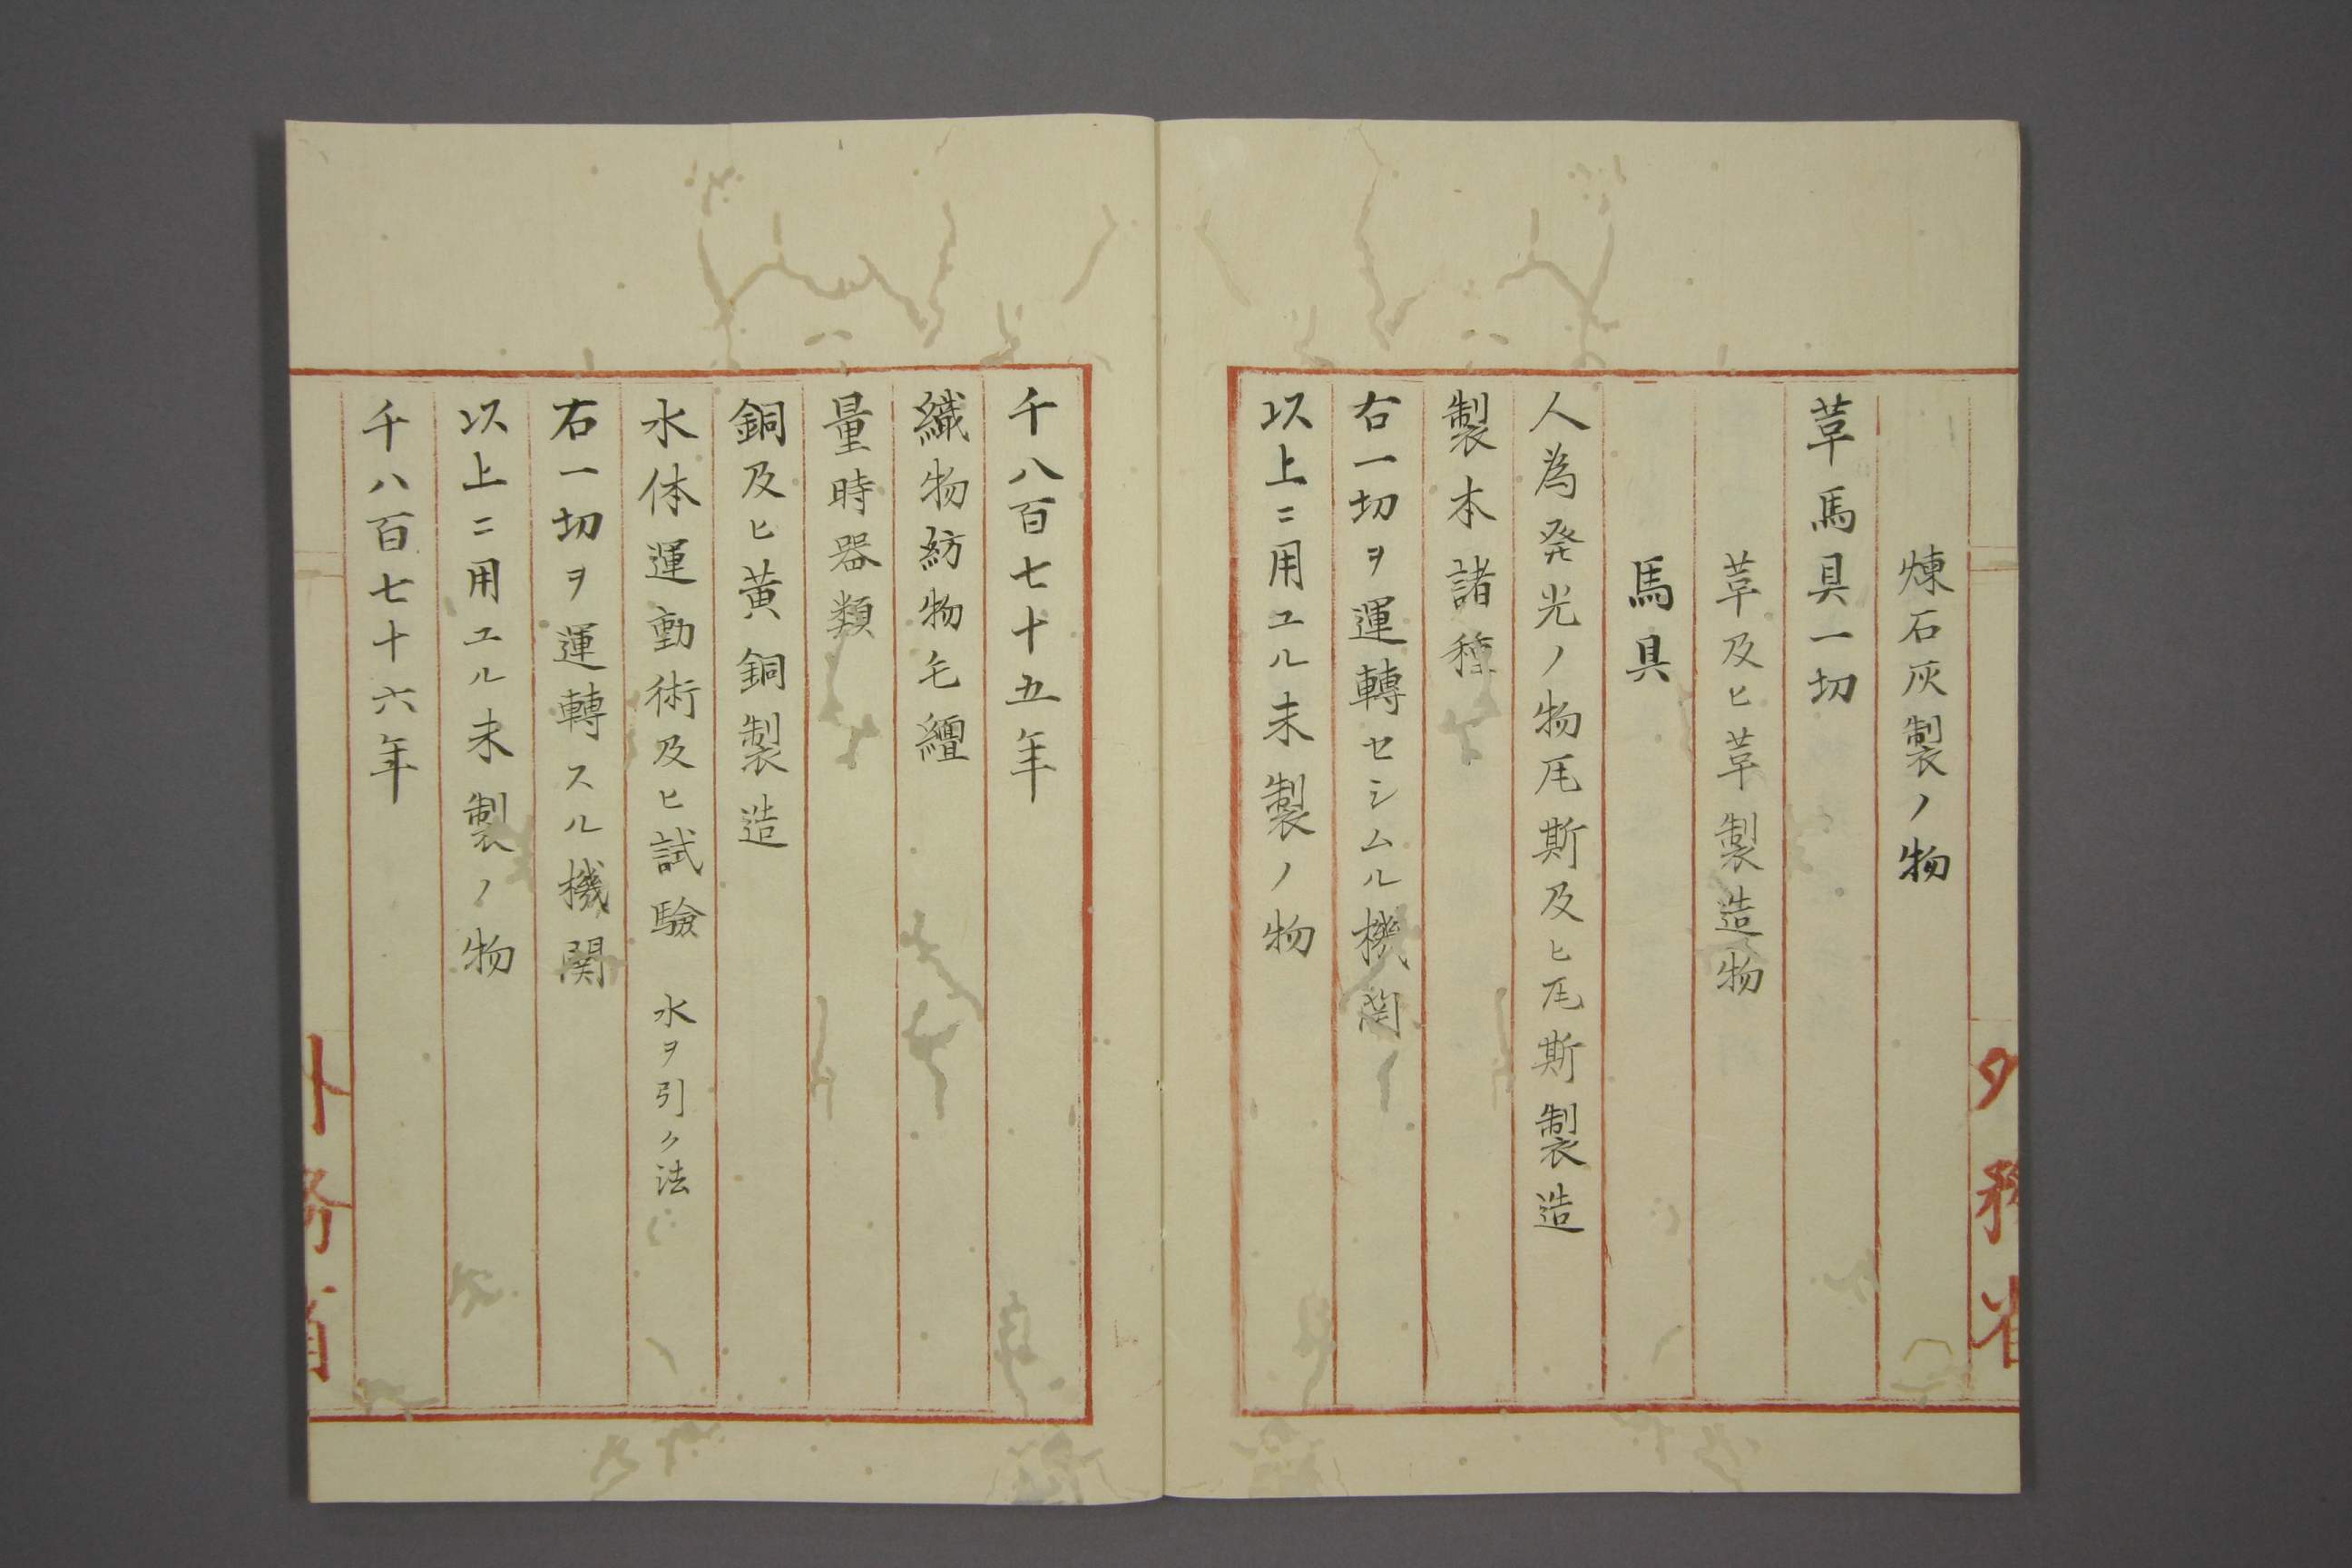 煉石灰製ノ物
革馬具一切
革及ヒ革製造物
馬具
人為発光ノ物瓦斯及ヒ瓦斯製造
製本諸種
右一切ヲ運轉セシムル機関
以上ニ用ユル未製ノ物
外務省
千八百七十五年
織物紡物毛纏
量時器類
銅及ヒ黄銅製造
水体運動術及ヒ試驗 水ヲ引ク法
右一切ヲ運轉スル機関
以上ニ用ユル未製ノ物
千八百七十六年
外務省